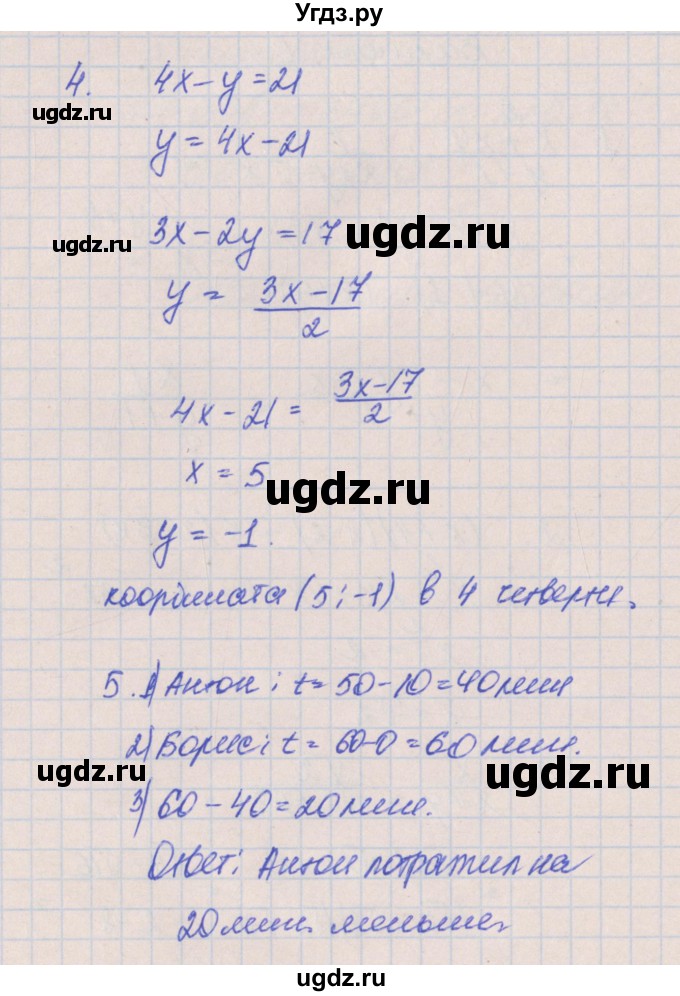 Угдз.ру
4. 4x-y=21
ugdz.ru
y=4x-21
3x-2y=17 ugdz.ru
ugdz.ru
y = (3x-17)/2
4x-21 = (3x-17)/2
x=5
ugdz.ru
y=-1.
координата (5;-1) в 4 четверти.
5. 1) Антон: t=50-10=40мин
2) Борис: t=60-0=60мин.
ugdz.ru ugdz.ru
3) 60-40=20мин.
Ответ: Антон потратил на
20мин. меньше.
ugdz.ru